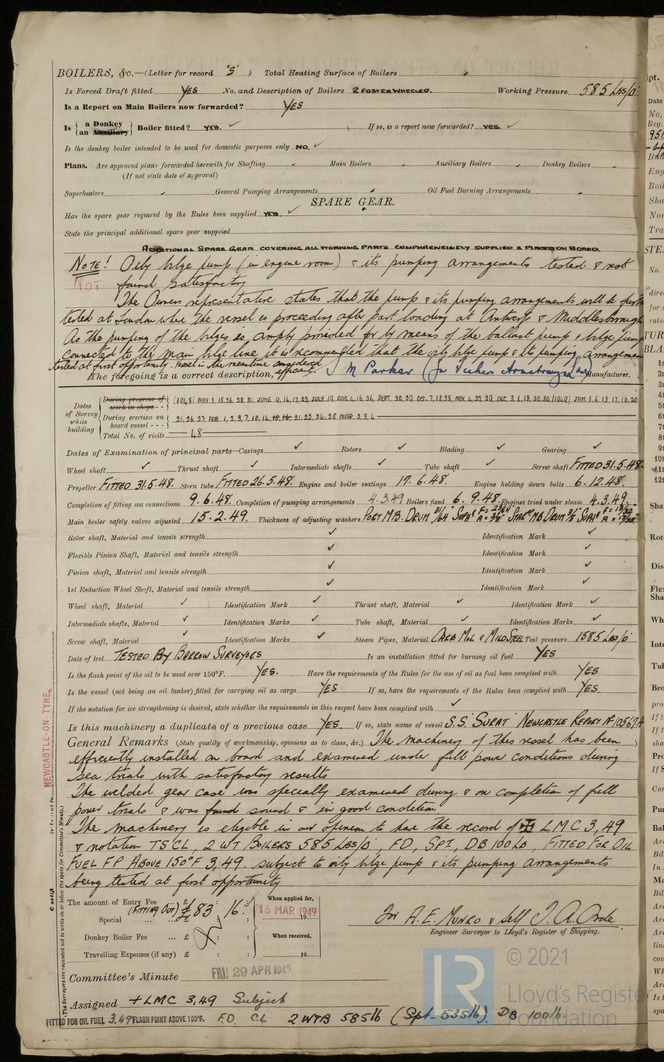 BOILERS, &c.—(Letter for record 'S') Total Heating Surface of Boilers
Is Forced Draft fitted YES No. and Description of Boilers 2 FOSTER WHEELER. Working Pressure 585 Lbs/□"
Is a Report on Main Boilers now forwarded? YES
Is { a Donkey / an Auxiliary } Boiler fitted? YES. ✓ If so, is a report now forwarded? YES. ✓
Is the donkey boiler intended to be used for domestic purposes only NO. ✓
Plans. Are approved plans forwarded herewith for Shafting Main Boilers Auxiliary Boilers Donkey Boilers
(If not state date of approval)
Superheaters General Pumping Arrangements Oil Fuel Burning Arrangements
SPARE GEAR.
Has the spare gear required by the Rules been supplied YES. ✓
State the principal additional spare gear supplied
ADDITIONAL SPARE GEAR COVERING ALL WORKING PARTS COMPREHENSIVELY SUPPLIED & PLACED ON BOARD.
NOTE! Oily bilge pump (in engine room) & its pumping arrangements tested & not
NOT found satisfactory
The Owners representative states that the pump & its pumping arrangements will be
tested at London where the vessel is proceeding after part loading at Antwerp & Middlesbrough
As the pumping of the bilges is amply provided for by means of the ballast pump & bilge pump
connected to the main bilge line it is recommended that the oily bilge pump & its pumping arrangements
tested at first opportunity. Vessel in the meantime considered
efficient.
The foregoing is a correct description, J M Parker (for Vickers Armstrongs Ltd) Manufacturer.
Dates of Survey while building
During progress of work in shops - -
During erection on board vessel - - -
Total No. of visits 48
Dates of Examination of principal parts—Casings ✓ Rotors ✓ Blading ✓ Gearing ✓
Wheel shaft ✓ Thrust shaft ✓ Intermediate shafts ✓ Tube shaft ✓ Screw shaft FITTED 31.5.48
Propeller FITTED 31.5.48. Stern tube FITTED 26.5.48. Engine and boiler seatings 17.6.48. Engine holding down bolts 6.12.48.
Completion of fitting sea connections 9.6.48. Completion of pumping arrangements 4.3.49 Boilers fixed 6.9.48. Engines tried under steam 4.3.49.
Main boiler safety valves adjusted 15.2.49. Thickness of adjusting washers
Rotor shaft, Material and tensile strength ✓ Identification Mark ✓
Flexible Pinion Shaft, Material and tensile strength ✓ Identification Mark ✓
Pinion shaft, Material and tensile strength ✓ Identification Mark ✓
1st Reduction Wheel Shaft, Material and tensile strength ✓ Identification Mark ✓
Wheel shaft, Material ✓ Identification Mark ✓ Thrust shaft, Material ✓ Identification Mark ✓
Intermediate shafts, Material ✓ Identification Marks ✓ Tube shaft, Material ✓ Identification Marks ✓
Screw shaft, Material ✓ Identification Marks ✓ Steam Pipes, Material CARB MOL & MILD STEEL Test pressure 1585 LBS/□"
Date of test TESTED BY BARROW SURVEYORS Is an installation fitted for burning oil fuel YES
Is the flash point of the oil to be used over 150°F. YES. Have the requirements of the Rules for the use of oil as fuel been complied with YES
Is the vessel (not being an oil tanker) fitted for carrying oil as cargo YES If so, have the requirements of the Rules been complied with YES.
If the notation for ice strengthening is desired, state whether the requirements in this respect have been complied with ✓
Is this machinery a duplicate of a previous case YES. If so, state name of vessel S.S. SURAT NEWCASTLE REPORT No 105674
General Remarks (State quality of workmanship, opinions as to class, &c.) The machinery of this vessel has been
efficiently installed on board and examined under full power conditions during
sea trials with satisfactory results
The welded gear case was specially examined during & on completion of full
power trials & was found sound & in good condition
The machinery is eligible in our opinion to have the record of LMC 3,49
& notation TSCL, 2 WT BOILERS 585 LBS/□", FD, SPT, DB 100LB, FITTED FOR OIL
FUEL FP ABOVE 150°F 3,49. subject to oily bilge pump & its pumping arrangements
being tested at first opportunity
NEWCASTLE-ON-TYNE
The amount of Entry Fee
(FITTING OUT) £ 83 : 16 :
Special £
Donkey Boiler Fee ... £
Travelling Expenses (if any) £
When applied for,
15 MAR 1949
When received,
19
for A. E. Munro & self J. A. Poole
Engineer Surveyor to Lloyd's Register of Shipping.
Committee's Minute FRI 29 APR 1949
Assigned + LMC 3,49 Subject
FITTED FOR OIL FUEL 3,49 FLASH POINT ABOVE 150°F. F.D. CL 2 WTB 585 lb (Spt. 535 lb). DB 100 lb
© 2021
LR
Lloyd's Register
Foundation